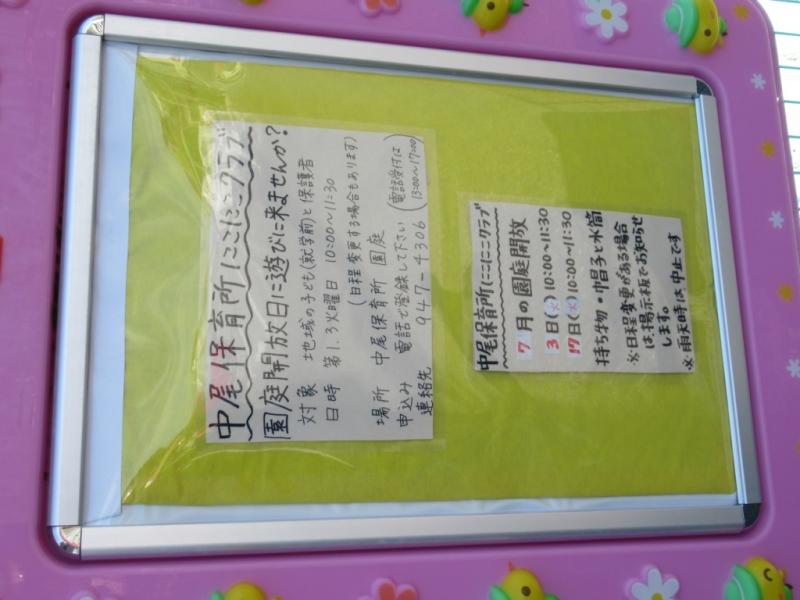 中尾保育所にこにこクラブ
園庭開放日に遊びに来ませんか?
対象 地域の子ども(就学前)と保護者
日時 第1.3火曜日 10:00〜11:30
(日程変更する場合もあります)
場所 中尾保育所 園庭
申込み 電話で登録して下さい (電話受付は
連絡先 947-4306 13:00〜17:00)
中尾保育所にこにこクラブ
7月の園庭開放
3日(火) 10:00〜11:30
17日(火) 10:00〜11:30
持ち物・帽子と水筒
※日程変更がある場合
は、掲示板でお知らせ
します。
※雨天時は中止です